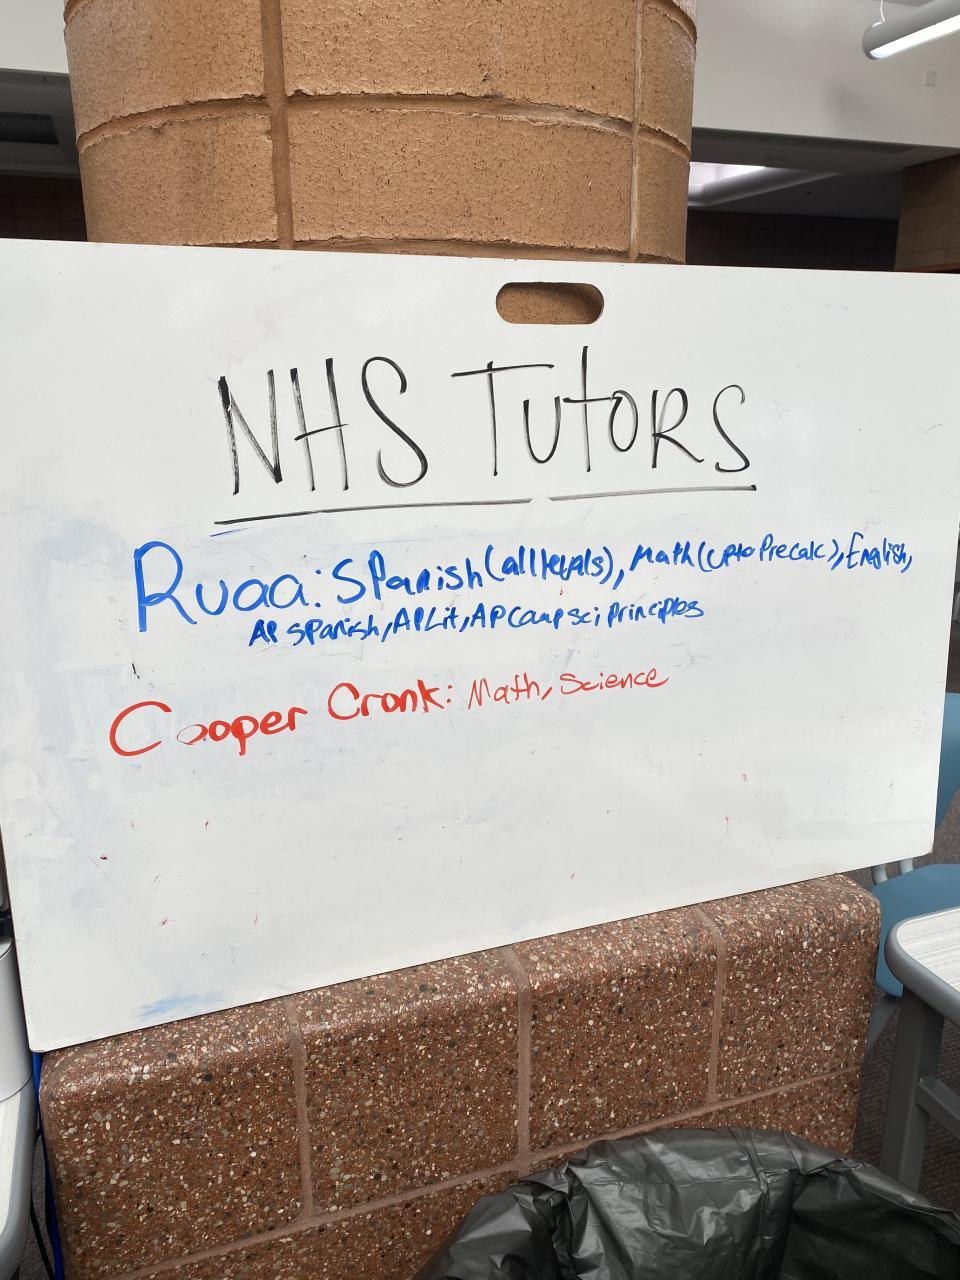 NHS Tutors
Ruaa: Spanish (all levels), Math (up to Precalc), English,
AP Spanish, AP Lit, AP Comp sci principles
Cooper Cronk: Math, Science